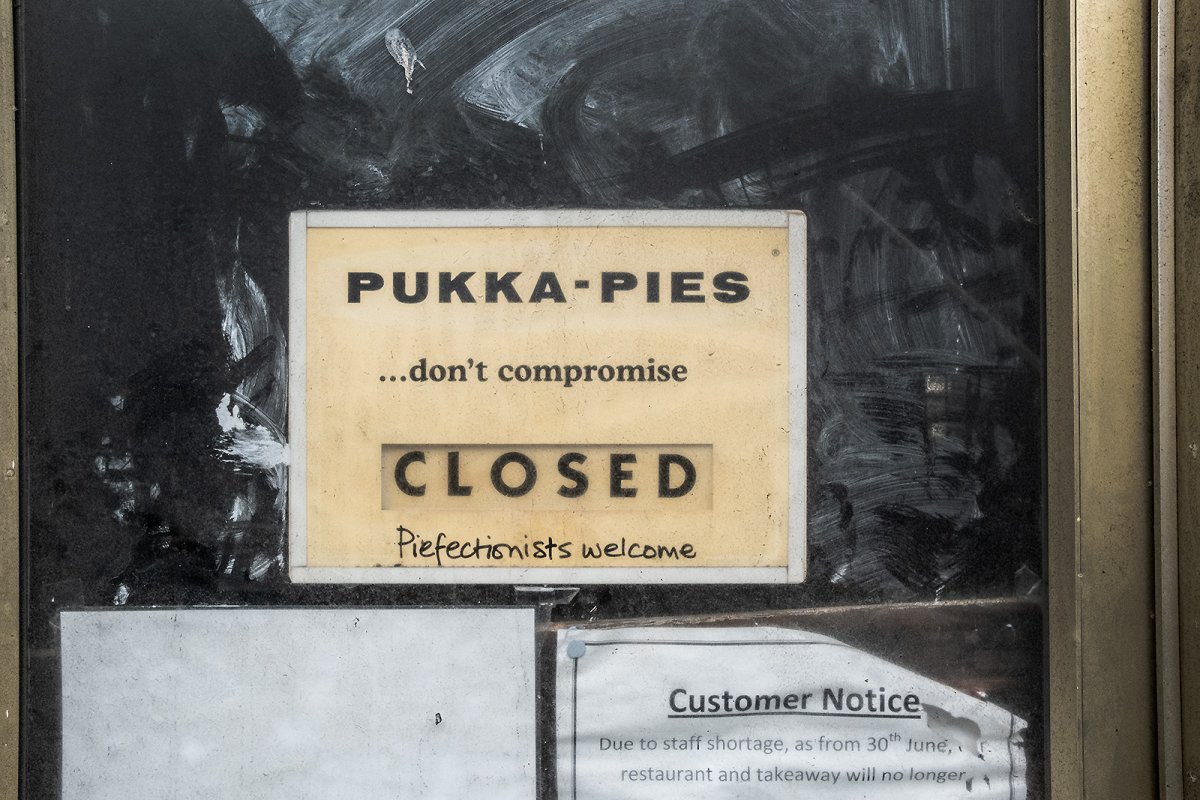 PUKKA-PIES
®
...don't compromise
CLOSED
Piefectionists welcome
Customer Notice
Due to staff shortage, as from 30th June,
restaurant and takeaway will no longer